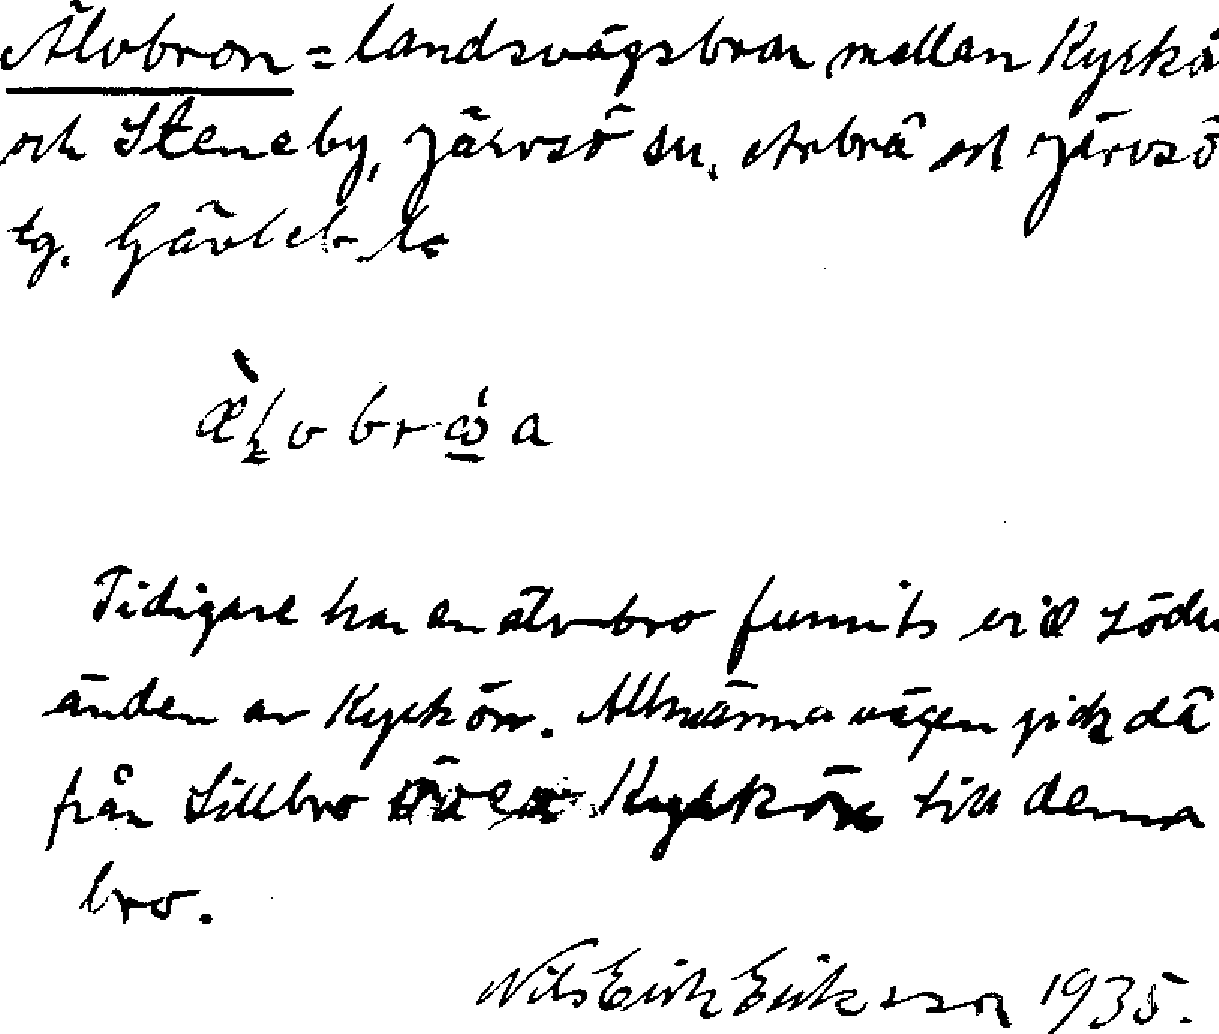 Älvbron = landsvägsbron mellan Kyrkö
och Steneby, Järvsö sn, Arbrå och Järvsö
tg. Gävleb. l.
æ̀ḷvbrώ̲a
Tidigare har en älvbro funnits vid södra
änden av Kyrkön. Allmänna vägen gick då
från Lillbro över Kyrkön till denna
bro.
Nils Erik Eriksson 1935.